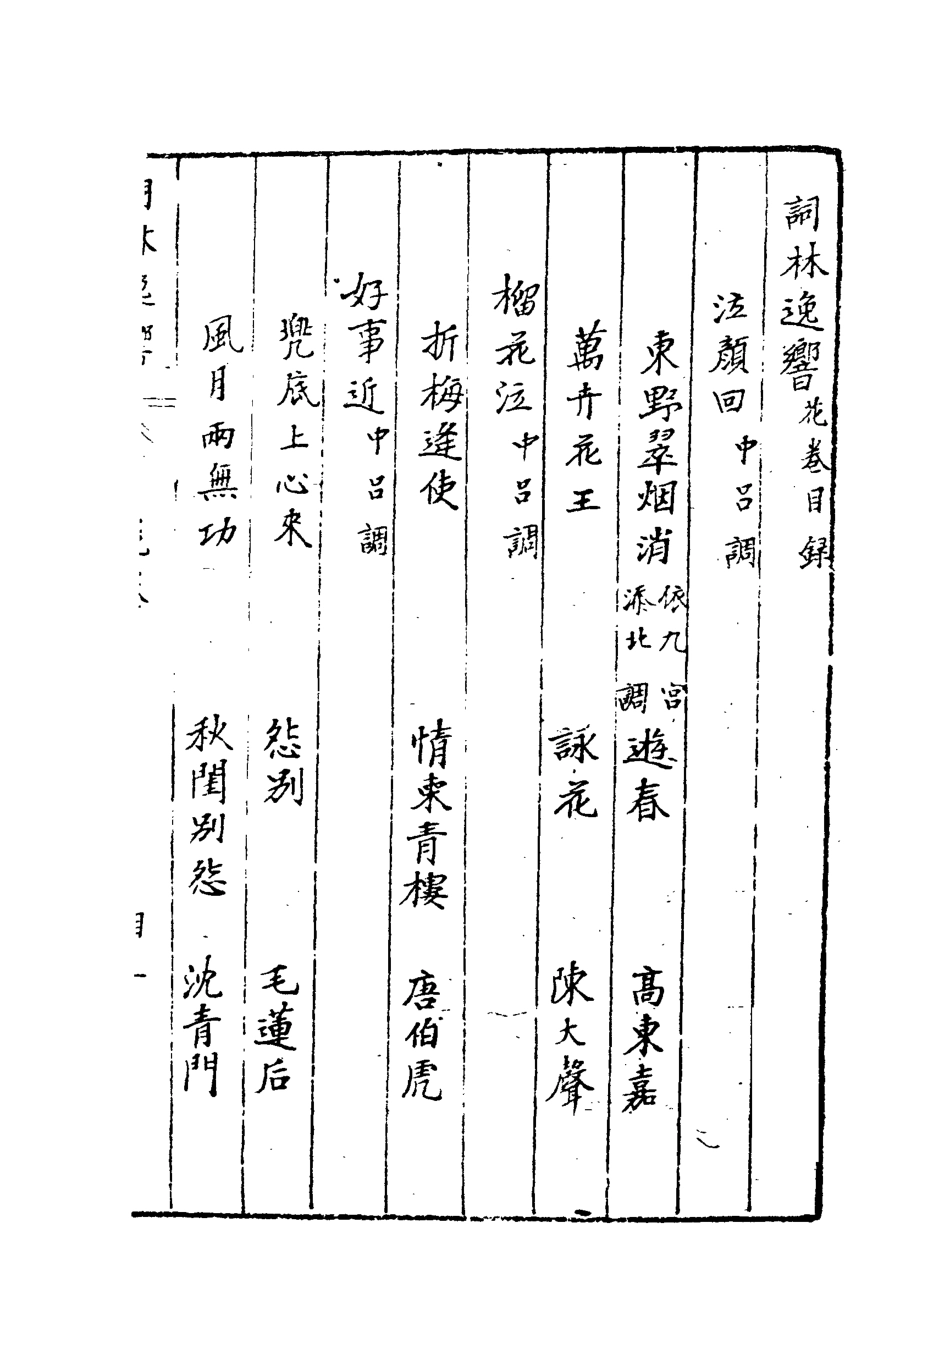 詞林逸響花卷目録
泣顏回 中呂調
東野翠烟消 依九宮添北調 遊春 高東嘉
萬卉花王 詠花 陳大聲
榴花泣 中呂調
折梅逢使 情柬青樓 唐伯虎
好事近 中呂調
兜底上心來 怨別 毛蓮后
風月兩無功 秋閨別怨 沈青門
目一